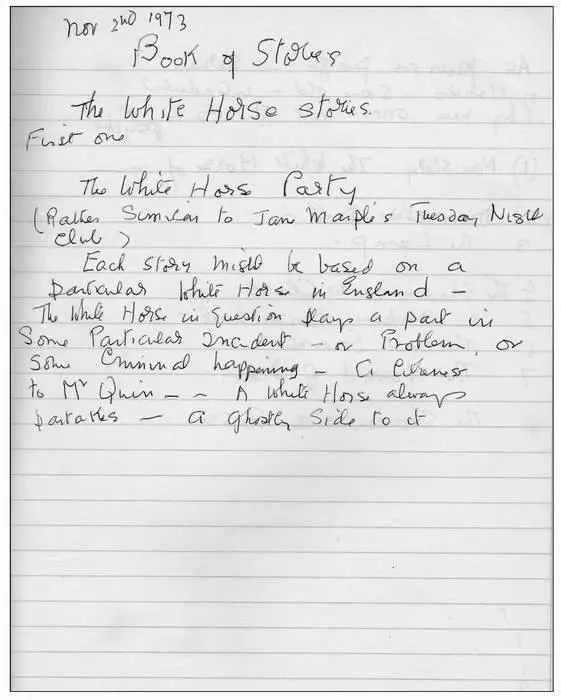 Nov 2nd 1973
Book of Stories
The White Horse stories.
First one
The White Horse Party
(Rather Similar to Jane Marple's Tuesday Night
Club)
Each story might be based on a
particular White Horse in England –
The White Horse in question plays a part in
Some Particular Incident – or Problem, or
Some Criminal happening – a likeness
to Mr Quin – – A White Horse always
partakes – a ghostly Side to it